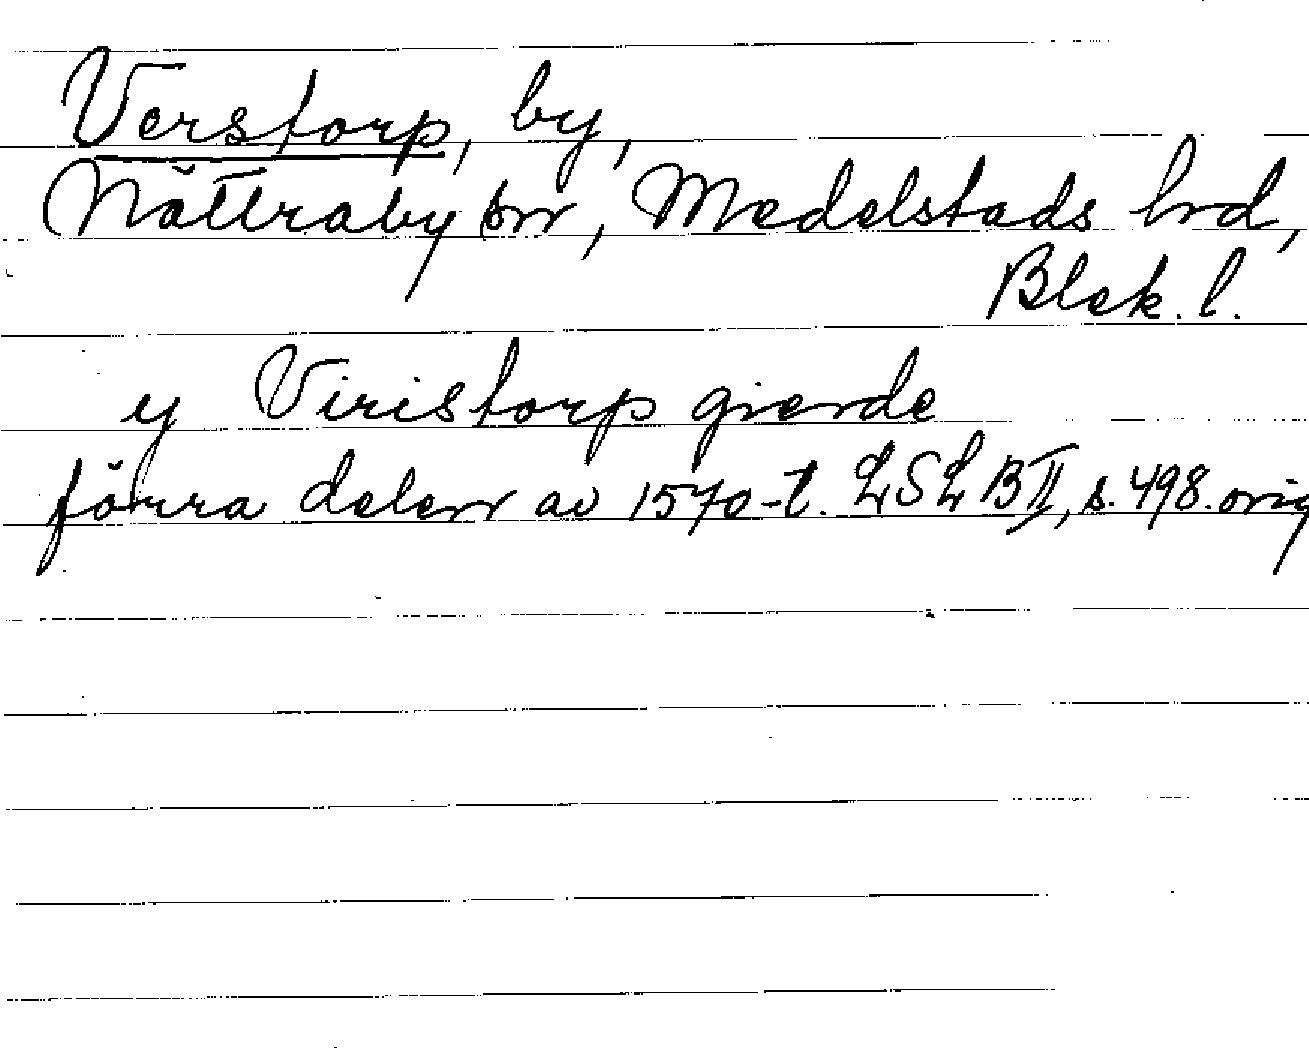 Verstorp, by,
Nättraby sn, Medelstads hrd,
Blek. l.
y Viristorp gierde
förra delen av 1570-t. LSLB II, s. 498. orig